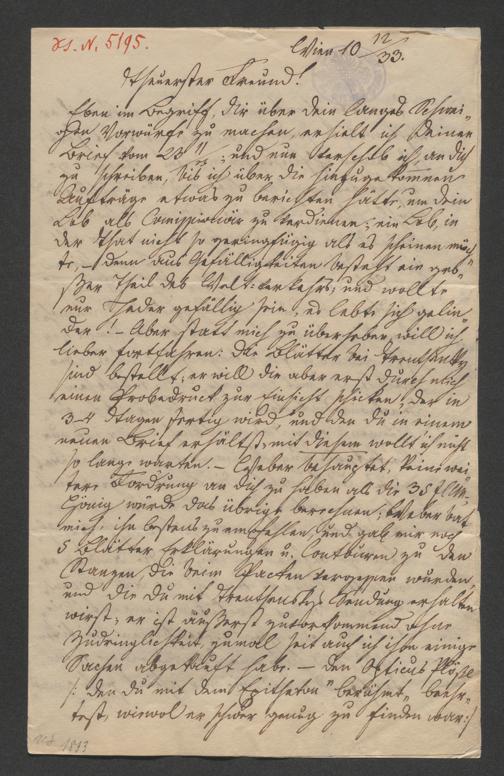 H. I. N. 5195.
Wien 10 12/33.
Theuerster Freund!
Eben im Begriff, dir über dein langes Schwei-
gen Vorwürfe zu machen, erhielt ich deinen
Brief vom 23 11; und nun verschob ich, an dich
zu schreiben, bis ich über die hinzugekommenen
Aufträge etwas zu berichten hätte, um dein
Lob als Comissionär zu verdienen; ein Lob, in
der That nicht so geringfügig als es scheinen möch-
te, – denn aus Gefälligkeiten besteht ein gro-
ßer Theil des Weltverkehrs; und wollte
nur Jeder gefällig sein, es lebte sich gelin-
der! – Aber statt mich zu überheben, will ich
lieber fortfahren: Die Blätter bei Trentsensky
sind bestellt; er will dir aber erst durch mich
einen Probedruck zur Einsicht schicken, der in
3–4 Tagen fertig wird, und den du in einem
neuen Brief erhältst; mit diesem wollt ich nicht
so lange warten. – Weber behauptet, keine wei-
tere Fordrung an dich zu haben als die 35 fl
König würde das übrige berechnen; Weber bat
mich, ihn bestens zu empfehlen, und gab mir noch
5 Blätter Erklärungen u. Contouren zu den
Stanzen, die beim Packen vergessen wurden
und die du mit Trentsenskys Sendung erhalten
wirst; er ist äußerst zuvorkommend ohne
Zudringlichkeit, zumal seit auch ich ihm einige
Sachen abgekauft habe. – Den Opticus Plößl
/: den du mit dem Epitheton "berühmt" beehr-
test, wiewol er schwer genug zu finden war :/
1833